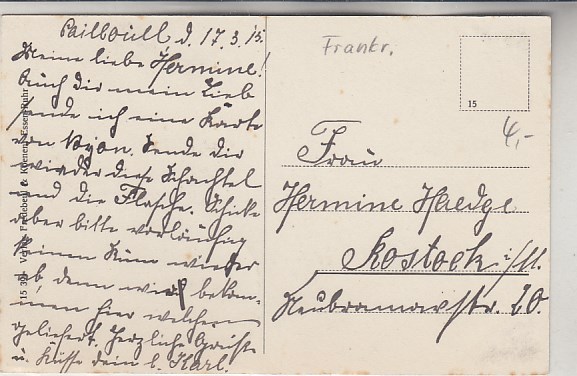 Pailboull d. 17.3.15.
Meine liebe Hermine!
Auch dir mein Lieb
sende ich eine Karte
von Dijon. Sende dir
wieder diese Schachtel
und die Flasche. Schicke
aber bitte vorläufig
keinen Rum wieder
ab, denn wir bekom-
men hier welchen
geliefert. Herzliche Grüße
u. Küsse dein l. Karl.
15 391 Verlag Fredebeul & Koenen, Essen-Ruhr
Frankr.
15
4,-
Frau
Hermine Haedge
Rostock i/M.
Neubramowstr. 20.